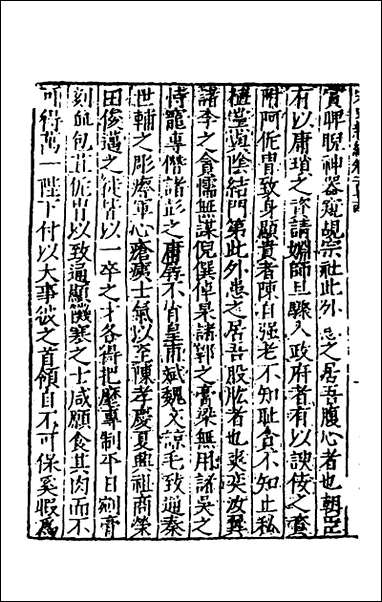 實睥睨神器窺覘宗社此外患之居吾腹心者也朝臣
有以庸瑣之資請姻師旦驟入政府者有以諛佞之資
附阿侂冑致身顯貴者陳自强老不知耻貪不知止私
植黨與陰結門第此外患之居吾股肱者也爽奕汝翼
諸李之貪懦無謀倪僎倬杲諸郭之膏粱無用諸吳之
恃寵專僭諸彭之庸孱不肖皇甫斌魏友諒毛致通秦
世輔之彫瘵軍心瘡痍士氣以至陳孝慶夏興祖商榮
田俊邁之徒皆以一卒之才各得把麾專制平日剜膏
刻血包苴侂冑以致通顯饑寒之士咸願食其肉而不
可得萬一陛下付以大事彼之首領自不可保奚暇爲